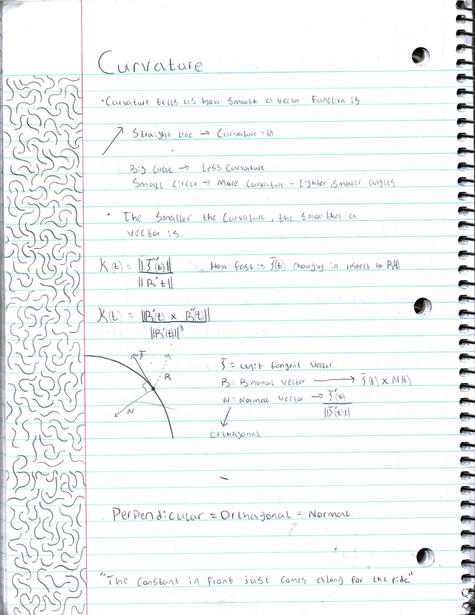 Curvature
• Curvature tells us how smooth a vector function is
Straight line → Curvature = 0
Big Circle → Less Curvature
Small Circle → More Curvature - tighter, smaller angles
• The smaller the curvature, the smoother a
vector is.
K(t) = ||T'(t)|| / ||R'(t)|| How fast is T(t) changing in respect to R(t)
K(t) = ||R'(t) x R''(t)|| / ||R'(t)||³
T
B
N
T = unit tangent vector
B = Binormal vector → T(t) x N(t)
N = Normal vector → T'(t) / ||T'(t)||
Orthagonal
Bryan
Perpendicular = Orthagonal = Normal
"The constant in front just comes along for the ride."